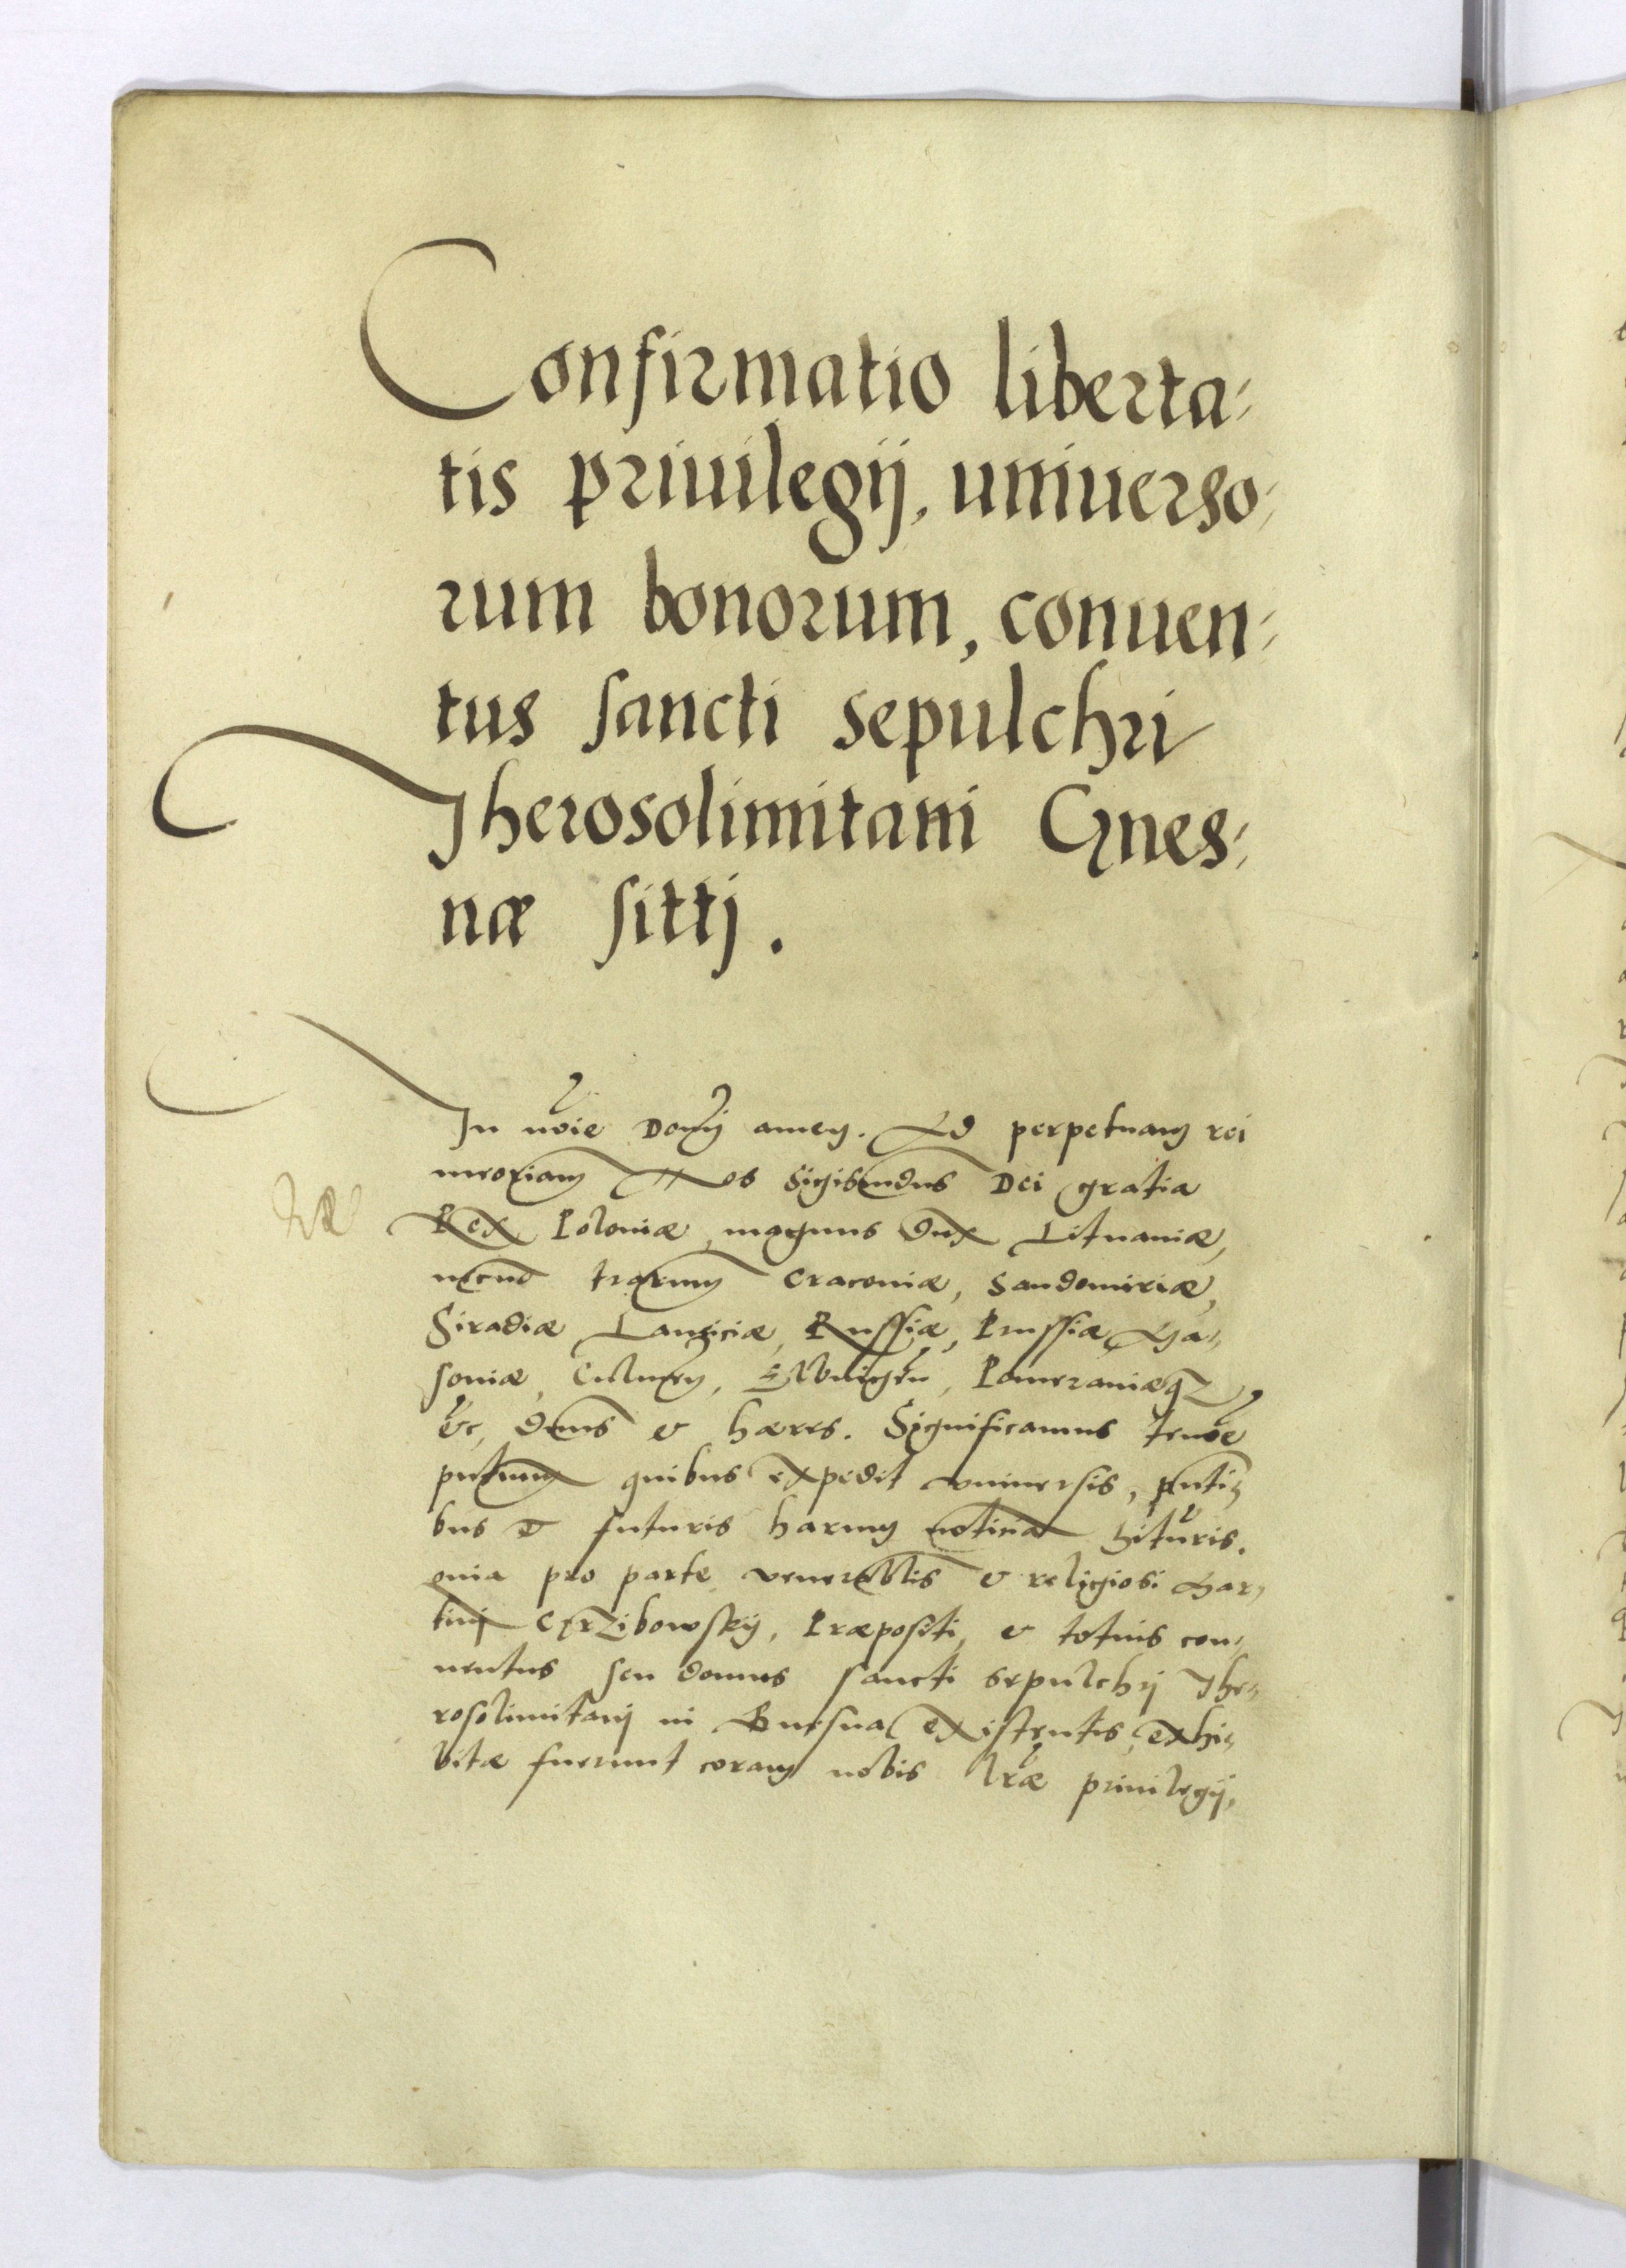 Confirmatio liberta=
tis priuilegij, uniuerso=
rum bonorum, conuen=
tus sancti sepulchri
Jherosolimitani Gnes=
næ sittj.
In noie Domj amen. Ad perpetuam rei
meoriam Nos Sigismdus Dei gratia
Rex Poloniæ, magnus dux Lituaniæ,
necno trarum Cracouiæ, Sandomiriæ,
Siradiæ Lanziciæ, Russiæ, Prussiæ Ma=
souiæ, Culmen, Elbingen, Pomeraniæq
etc, dnus et hæres. Significamus tenore
pntium quibus expedit vniuersis, pnti=
bus et futuris harum noticia hituris.
pro parte venerablis et religiosi Mar=
tini Grzibowskij, Præpositi, et totius con=
uentus seu domus sancti sepulchrj Jhe=
rosolimitanj in Gnesna existentis, exhi=
bitæ fuerunt coram nobis lræ priuilegij,